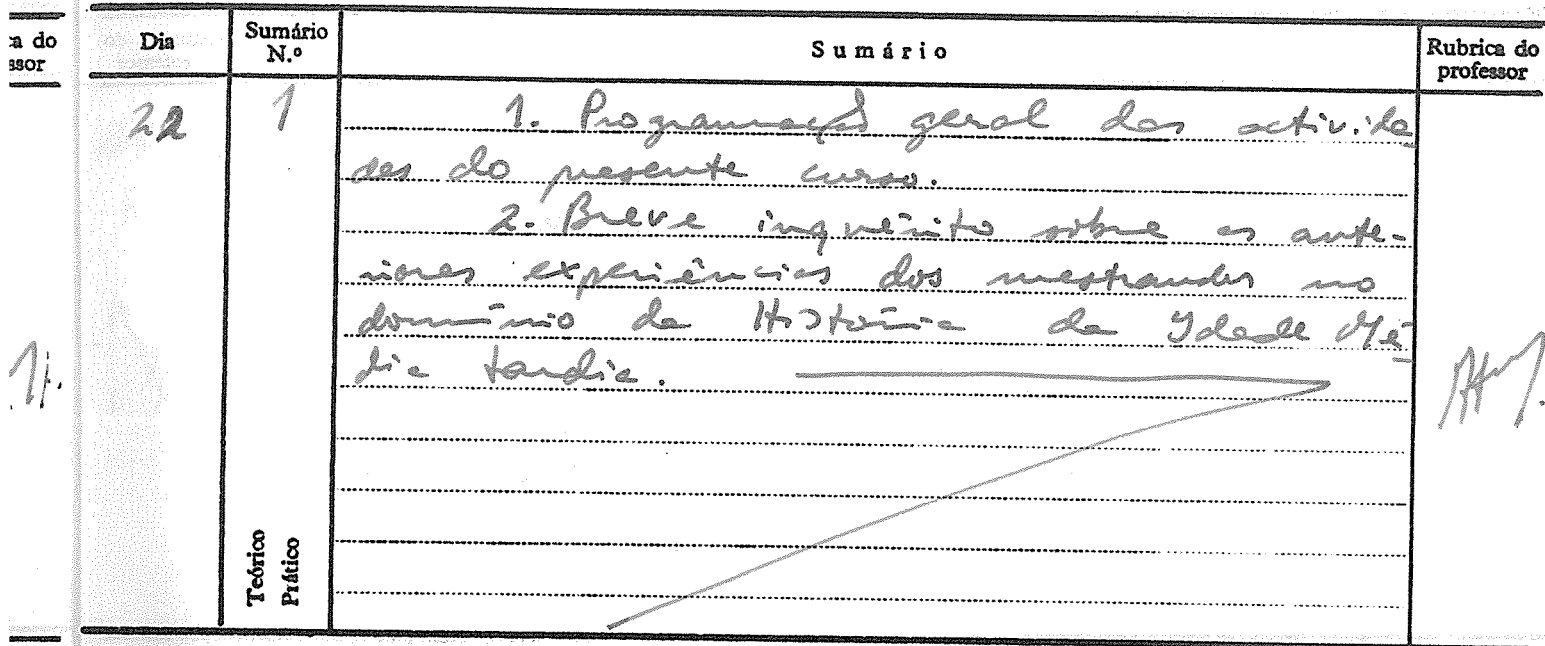 a do
ssor
Dia
Sumário
N.º
Sumário
Rubrica do
professor
22
1
1. Programação geral das activida
des do presente curso.
2. Breve inquérito sobre as ante-
riores experiências dos mestrandos no
domínio da História da Idade Mé
dia tardia.
Teórico
Prático